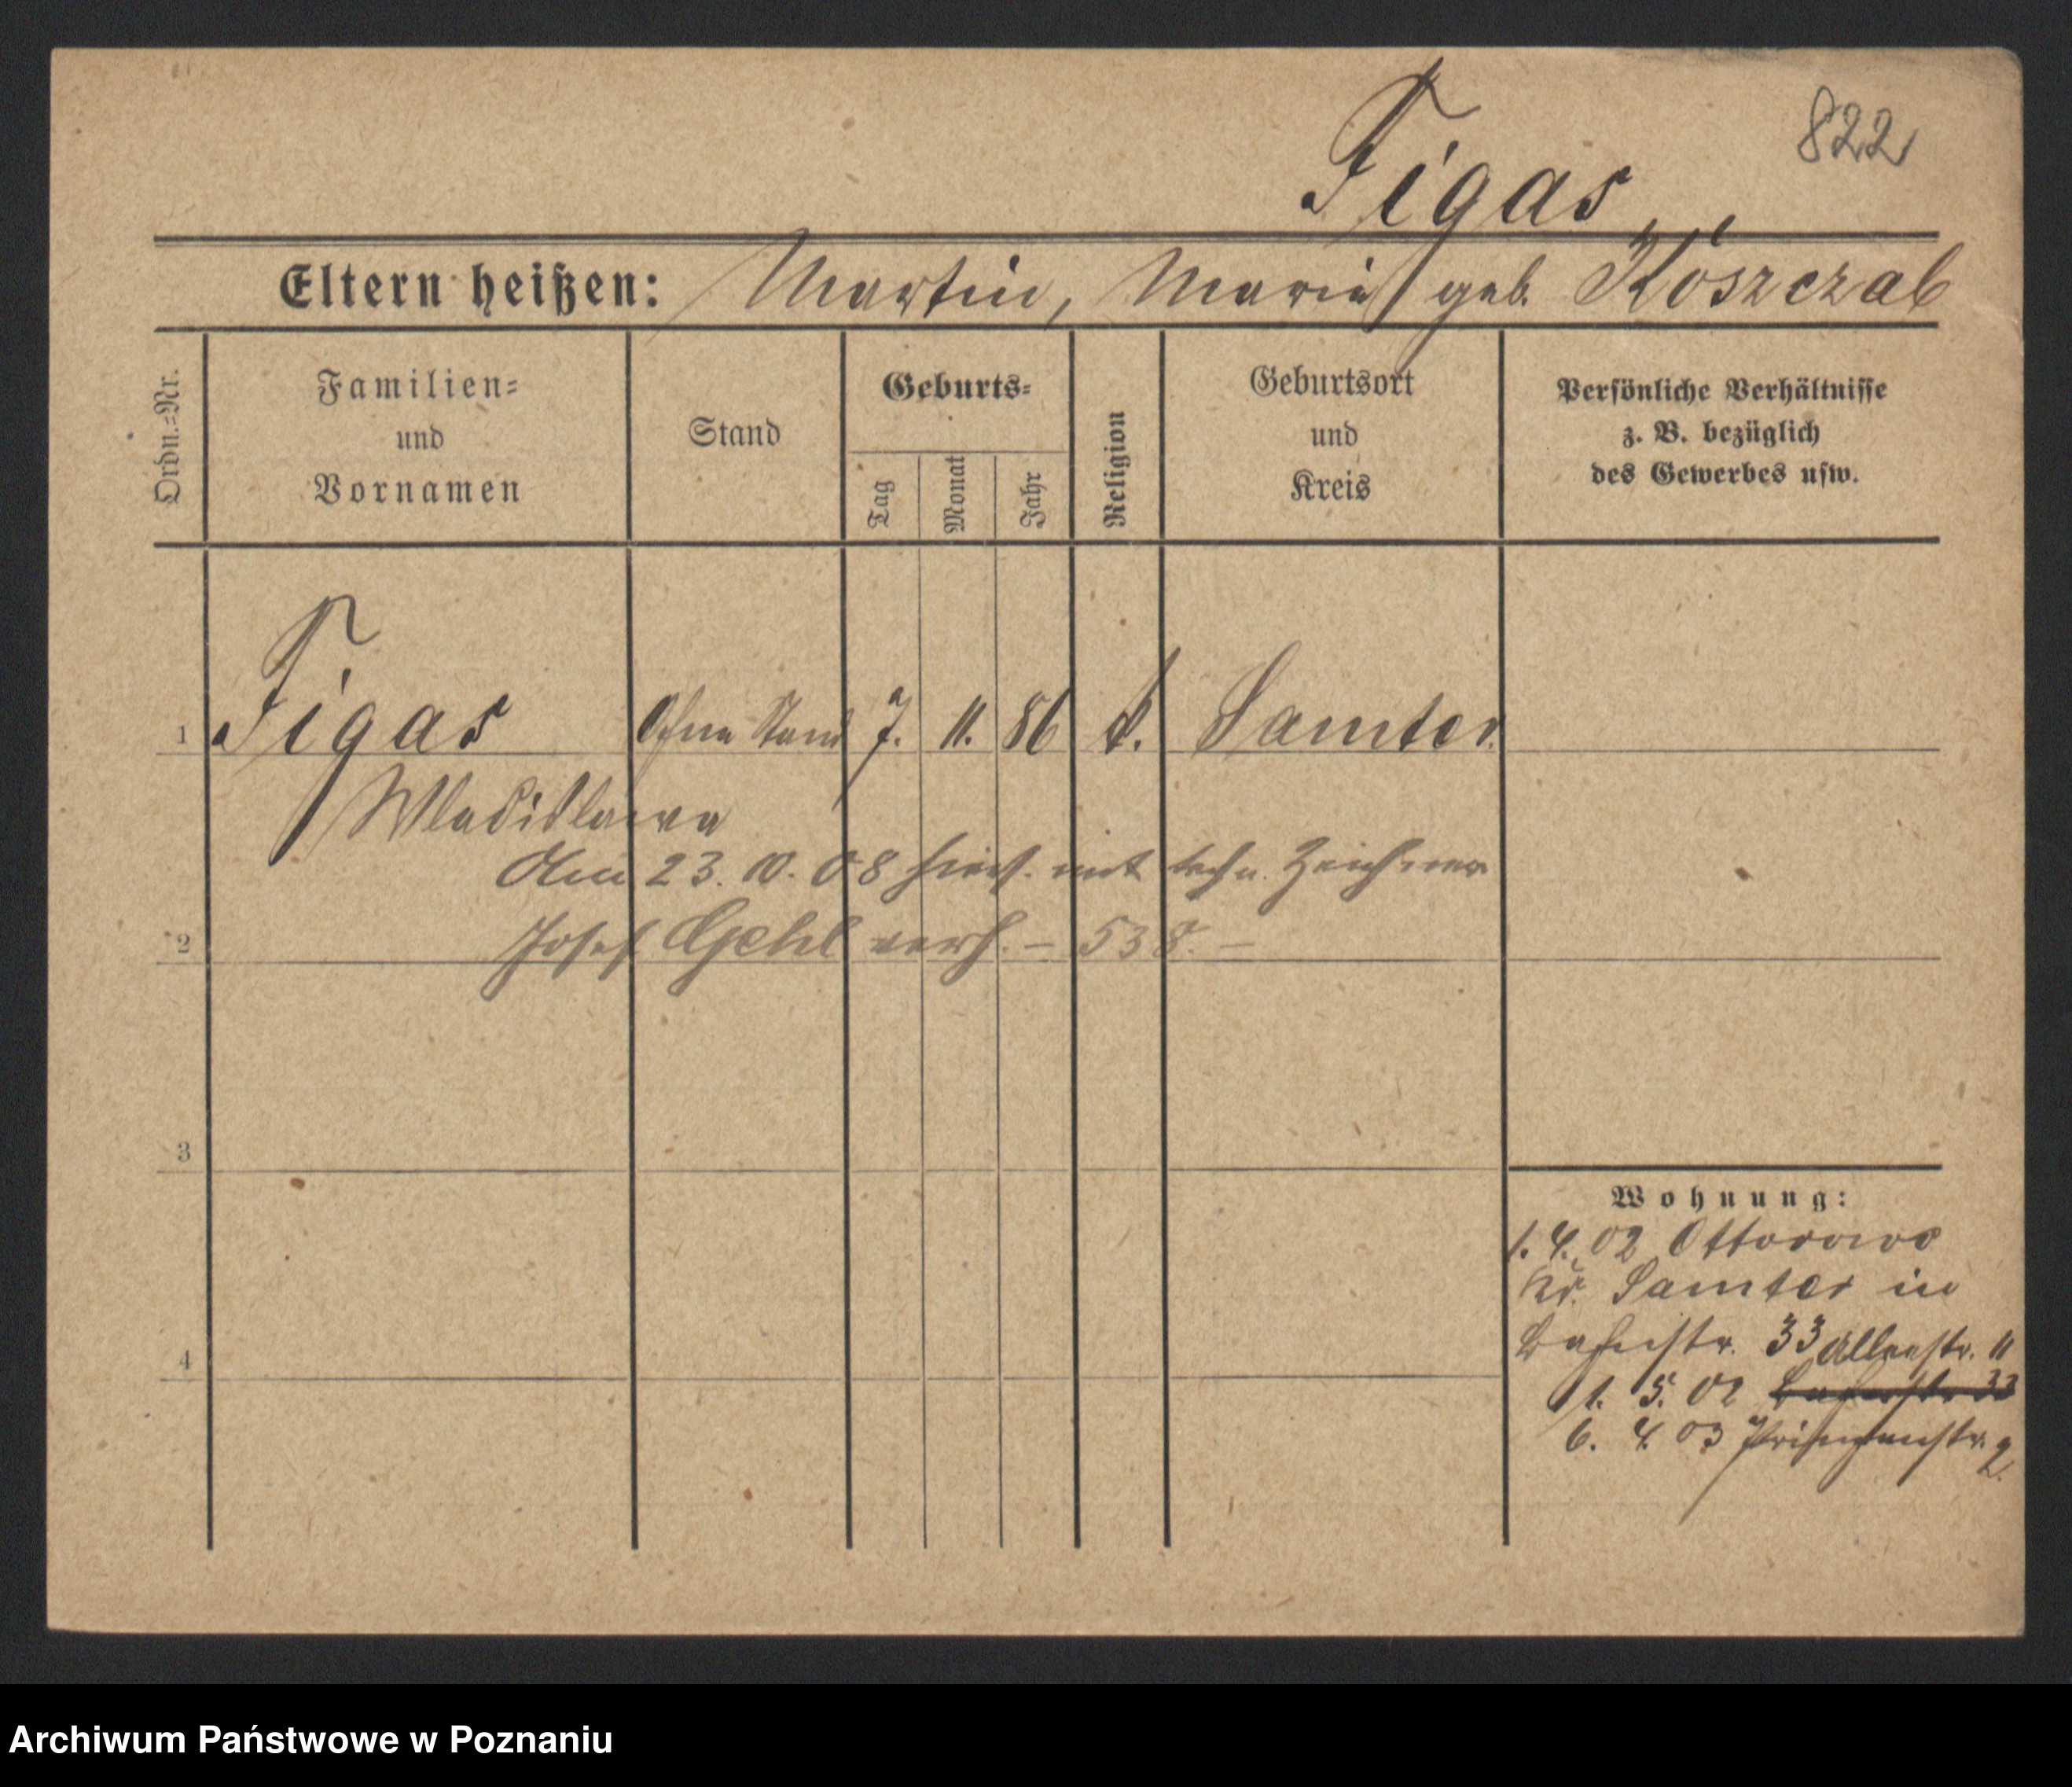 822
Figas
Eltern heißen: Martin, Marie geb. Kószczab
Ordn.=Nr.
Familien=
und
Vornamen
Stand
Geburts=
Tag
Monat
Jahr
Religion
Geburtsort
und
Kreis
Persönliche Verhältnisse
z. B. bezüglich
des Gewerbes usw.
1 Figas Ohne Stand 7. 11. 86 k. Samter
Wladislawa
Am 23. 10. 08 hies. mit techn. Zeichner
2 Josef Gehl verh. – 538. –
3
4
Wohnung:
1. 4. 02 Ottorowo
Kr. Samter in
Bahnstr. 33 Alleestr. 11
1. 5. 02 Bahnstr. 33
6. 4. 03 Prinzenstr. 2.
Archiwum Państwowe w Poznaniu